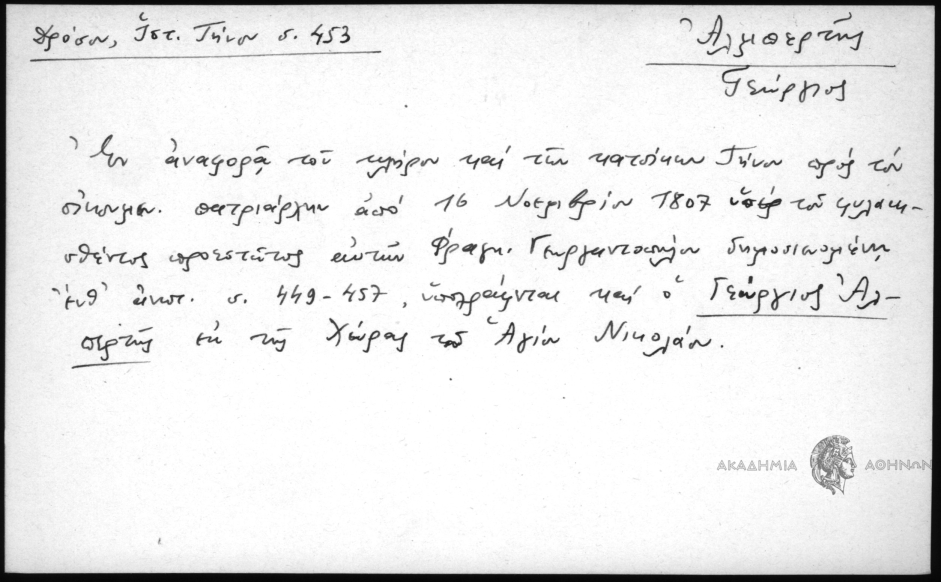 Δρόσου, Ἱστ. Τήνου σ. 453
Ἀλιπερτῆς
Γεώργιος
Ἐν ἀναφορᾷ τοῦ κλήρου καὶ τῶν κατοίκων Τήνου πρὸς τὸν
οἰκουμεν. πατριάρχην ἀπὸ 16 Νοεμβρίου 1807 ὑπὲρ τοῦ φυλακι-
σθέντος προεστῶτος αὐτῶν Φραγκ. Γεωργαντοπούλου δημοσιευομένῃ
ἔνθ' ἀνωτ. σ. 449-457, ὑπογράφεται καὶ ὁ Γεώργιος Ἀλι-
περτῆς ἐκ τῆς Χώρας τοῦ Ἁγίου Νικολάου.
ΑΚΑΔΗΜΙΑ ΑΘΗΝΩΝ